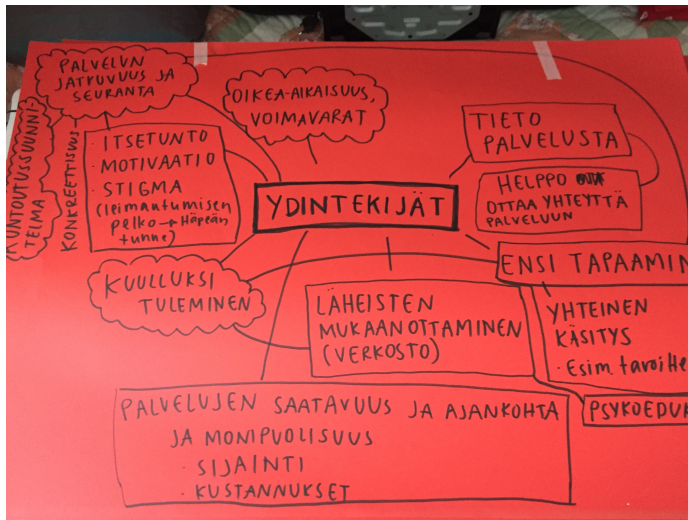 PALVELUN
JATKUVUUS JA
SEURANTA
OIKEA-AIKAISUUS,
VOIMAVARAT
TIETO
PALVELUSTA
KUNTOUTUSSUUNNI-
TELMA
KONKREETTISUUS
· ITSETUNTO
· MOTIVAATIO
· STIGMA
(leimaantumisen
pelko → Häpeän
tunne)
YDINTEKIJÄT
HELPPO
OTTAA YHTEYTTÄ
PALVELUUN
KUULLUKSI
TULEMINEN
LÄHEISTEN
MUKAANOTTAMINEN
(VERKOSTO)
ENSI TAPAAMIN
YHTEINEN
KÄSITYS
· Esim. tavoitte
PSYKOEDUK
PALVELUJEN SAATAVUUS JA AJANKOHTA
JA MONIPUOLISUUS
· SIJAINTI
· KUSTANNUKSET